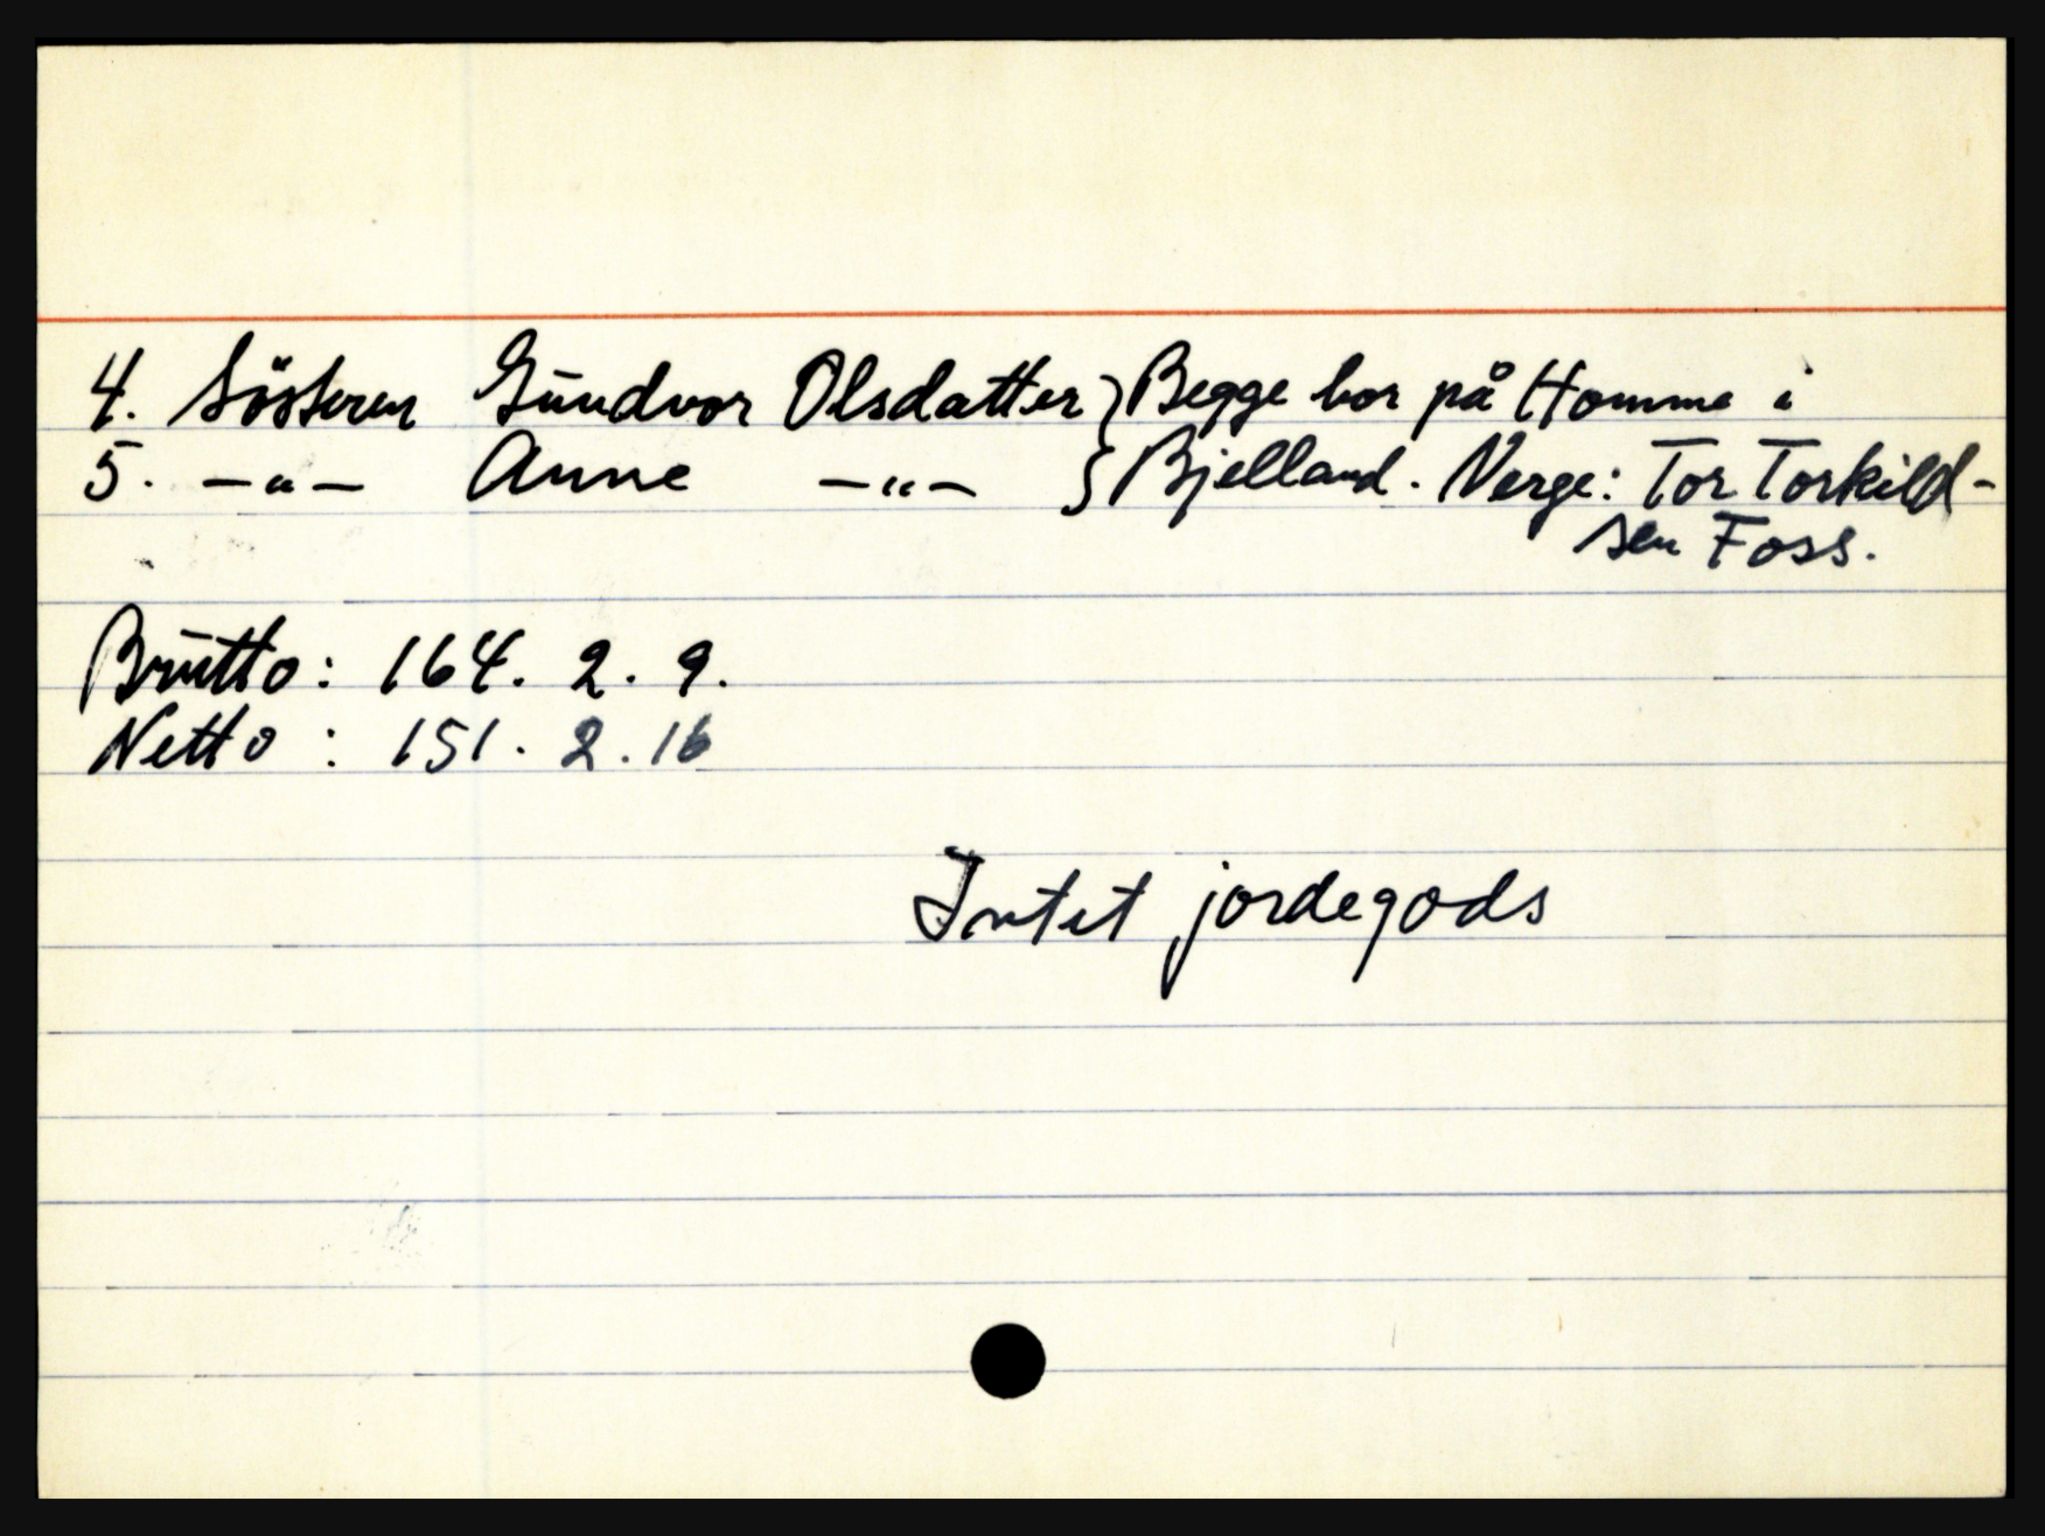 4. Sösteren Gundvor Olsdatter } Begge bor på Homme i
5. -"- Anne -"- } Bjelland. Verge: Tor Torkild-
sen Foss.
Brutto: 164. 2. 9.
Netto : 151. 2. 16
Intet jordegods